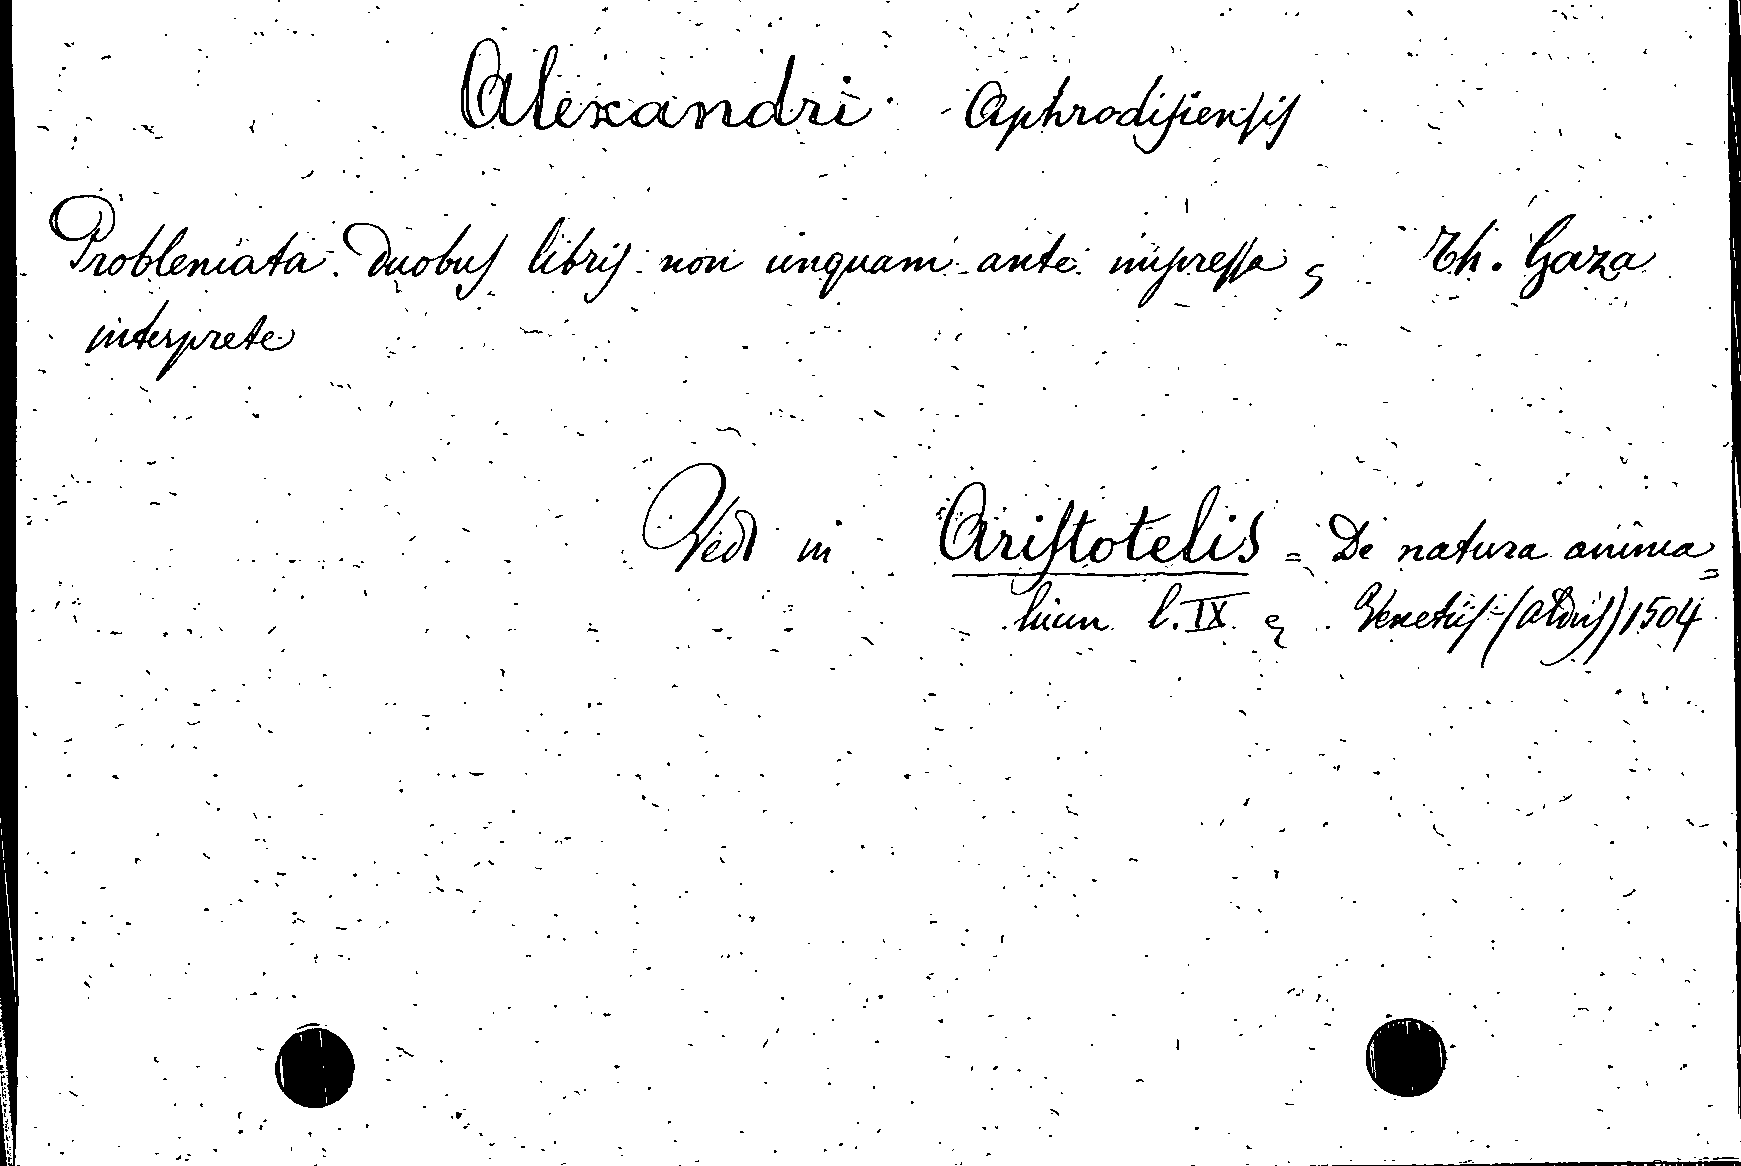 Alexandri Aphrodisiensis
Problemata duobus libris non unquam ante impressa, Th. Gaza
interprete
Vedi in Aristotelis = De natura anima=
lium l. IX. e, Venetiis - (Aldus) 1504